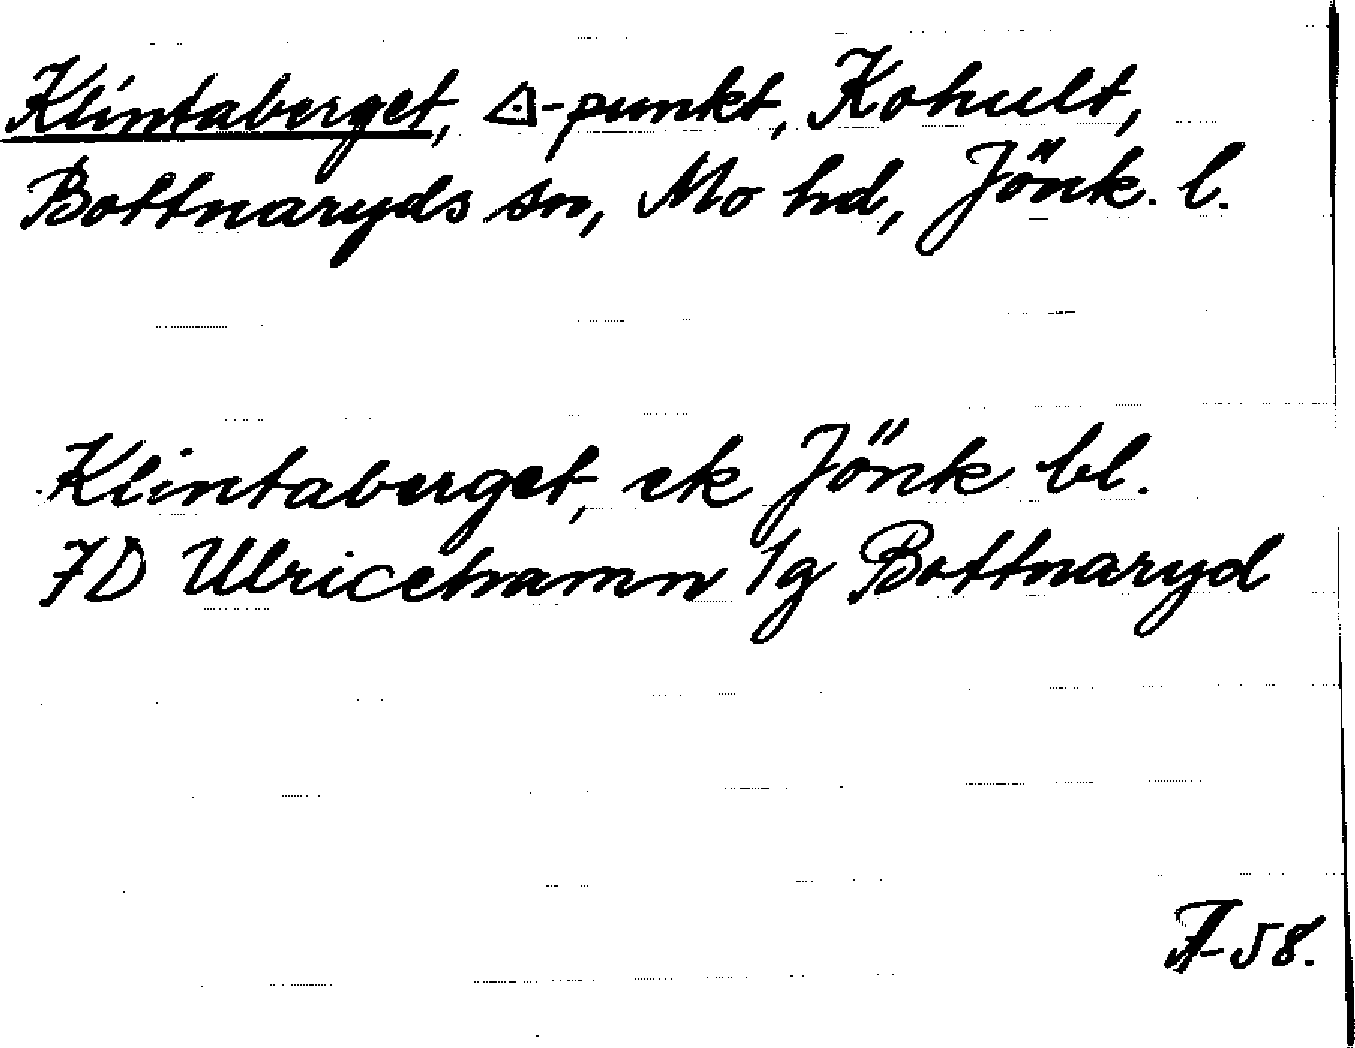 Klintaberget, ⟁-punkt, Kohult,
Bottnaryds sn, Mo hd, Jönk. l.
Klintaberget, ek Jönk bl.
7D Ulricehamn 1g Bottnaryd
-58.